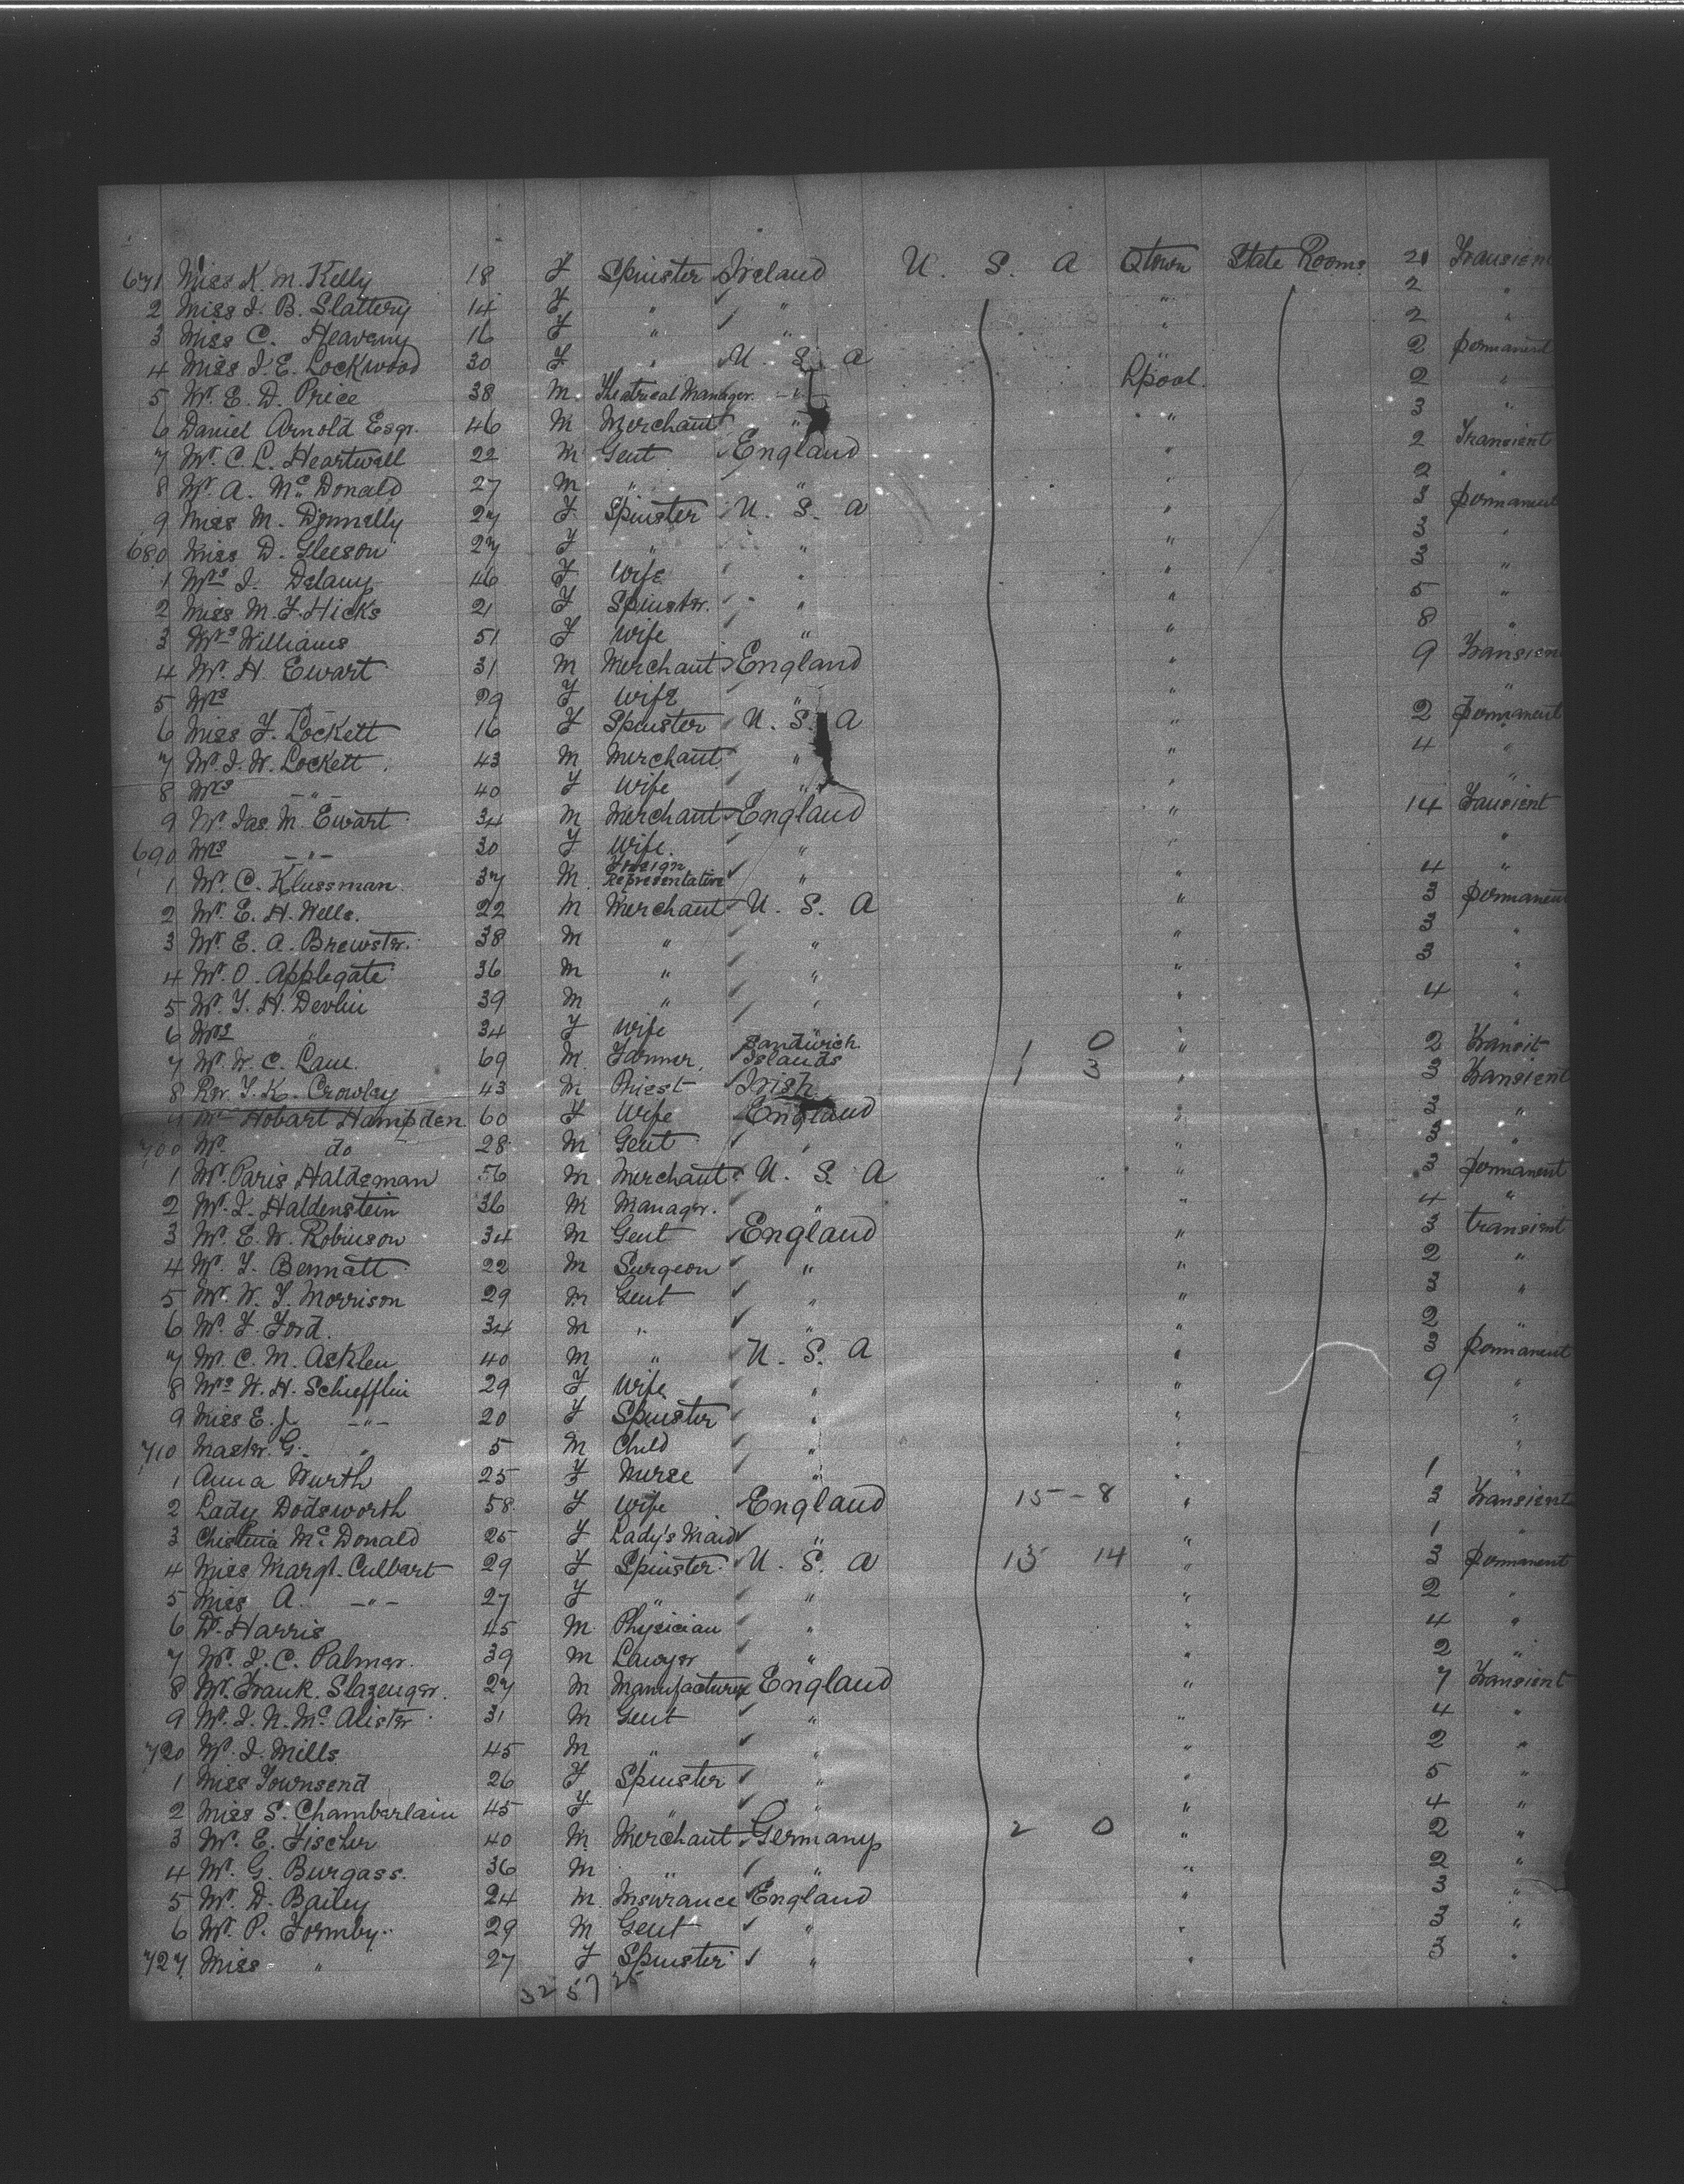 671 Miss K. M. Kelly 18 F Spinster Ireland U. S. A Qtown State Rooms 2 Transient
2 Miss I. B. Slattery 14 F " " " 2 "
3 Miss C. Heaveny 16 F " " " 2 "
4 Miss I. E. Lockwood 30 F " U. S. A " 2 permanent
5 Mr. E. D. Price 38 M. Theatrical Manager. " Lpool. 2 "
6 Daniel Arnold Esqr. 46 M Merchant " " 3 "
7 Mr. C. L. Heartwell 22 M Gent England " 2 Transient
8 Mr. A. McDonald 27 M " " " 2 "
9 Miss M. Donnelly 27 F Spinster U. S. A " 3 permanent
680 Miss D. Gleeson 27 F " " " 3 "
1 Mrs I. Delany 46 F Wife " " 3 "
2 Miss M. F. Hicks 21 F Spinster. " " 5 "
3 Mrs Williams 51 F Wife " " 8 "
4 Mr. H. Ewart 31 M Merchant England " 9 Transient
5 Mrs -"- 29 F Wife " " "
6 Miss F. Lockett 16 F Spinster U. S. A " 2 permanent
7 Mr. I. W. Lockett 43 M Merchant " " 4 "
8 Mrs -"- 40 F Wife " " "
9 Mr. Jas. M. Ewart 34 M Merchant England " 14 Transient
690 Mrs -"- 30 F Wife. " " "
1 Mr. C. Klussman 37 M. Foreign Representative " " 4 "
2 Mr. E. H. Wells. 22 M Merchant U. S. A " 3 permanent
3 Mr. E. A. Brewster. 38 M " " " 3 "
4 Mr. O. Applegate 36 M " " " 3 "
5 Mr. T. H. Devlin 39 M " " " 4 "
6 Mrs " 34 F Wife " " "
7 Mr. W. C. Lane 69 M. Farmer. Sandwich Islands 1 0 " 2 Transit
8 Rev. T. K. Crowley 43 M Priest Irish 1 3 " 3 Transient
9 Mrs Hobart Hampden. 60 F Wife England " 3 "
700 Mr. do 28 M Gent " " 3 "
1 Mr. Paris Haldeman 56 M Merchant U. S. A " 3 permanent
2 Mr. I. Haldenstein 36 M Manager. " " 4 "
3 Mr. E. W. Robinson 34 M Gent England " 3 transient
4 Mr. T. Bennatt 22 M Surgeon " " 2 "
5 Mr. W. T. Morrison 29 M Gent " " 3 "
6 Mr. F. Ford. 34 M " " " 2 "
7 Mr. C. M. Acklen 40 M " U. S. A " 3 permanent
8 Mrs W. H. Schiefflin 29 F Wife " " 9 "
9 Miss E. J. -"- 20 F Spinster " " "
710 Master. G. " 5 M Child " " "
1 Anna Wurth 25 F Nurse " " 1 "
2 Lady Dodsworth 58 F Wife England 15 - 8 " 3 Transient
3 Chistina McDonald 25 F Lady's Maid " " 1 "
4 Miss Margt. Culbart 29 F Spinster U. S. A 13 14 " 3 permanent
5 Miss A. -"- 27 F " " " 2 "
6 Dr. Harris 45 M Physician " " 4 "
7 Mr. I. C. Palmer. 39 M Lawyer " " 2 "
8 Mr. Frank. Slazenger. 27 M Manufacturer England " 7 Transient
9 Mr. I. N. McAlister 31 M Gent " " 4 "
720 Mr. I. Mills 45 M " " " 2 "
1 Miss Townsend 26 F Spinster " " 5 "
2 Miss S. Chamberlain 45 F " " " 4 "
3 Mr. E. Fischer 40 M. Merchant Germany 2 0 " 2 "
4 Mr. G. Burgass. 36 M " " " 2 "
5 Mr. D. Bailey 24 M. Insurance England " 3 "
6 Mr. P. Formby. 29 M Gent " " 3 "
727 Miss " 27 F Spinster " " 3 "
32 57 25